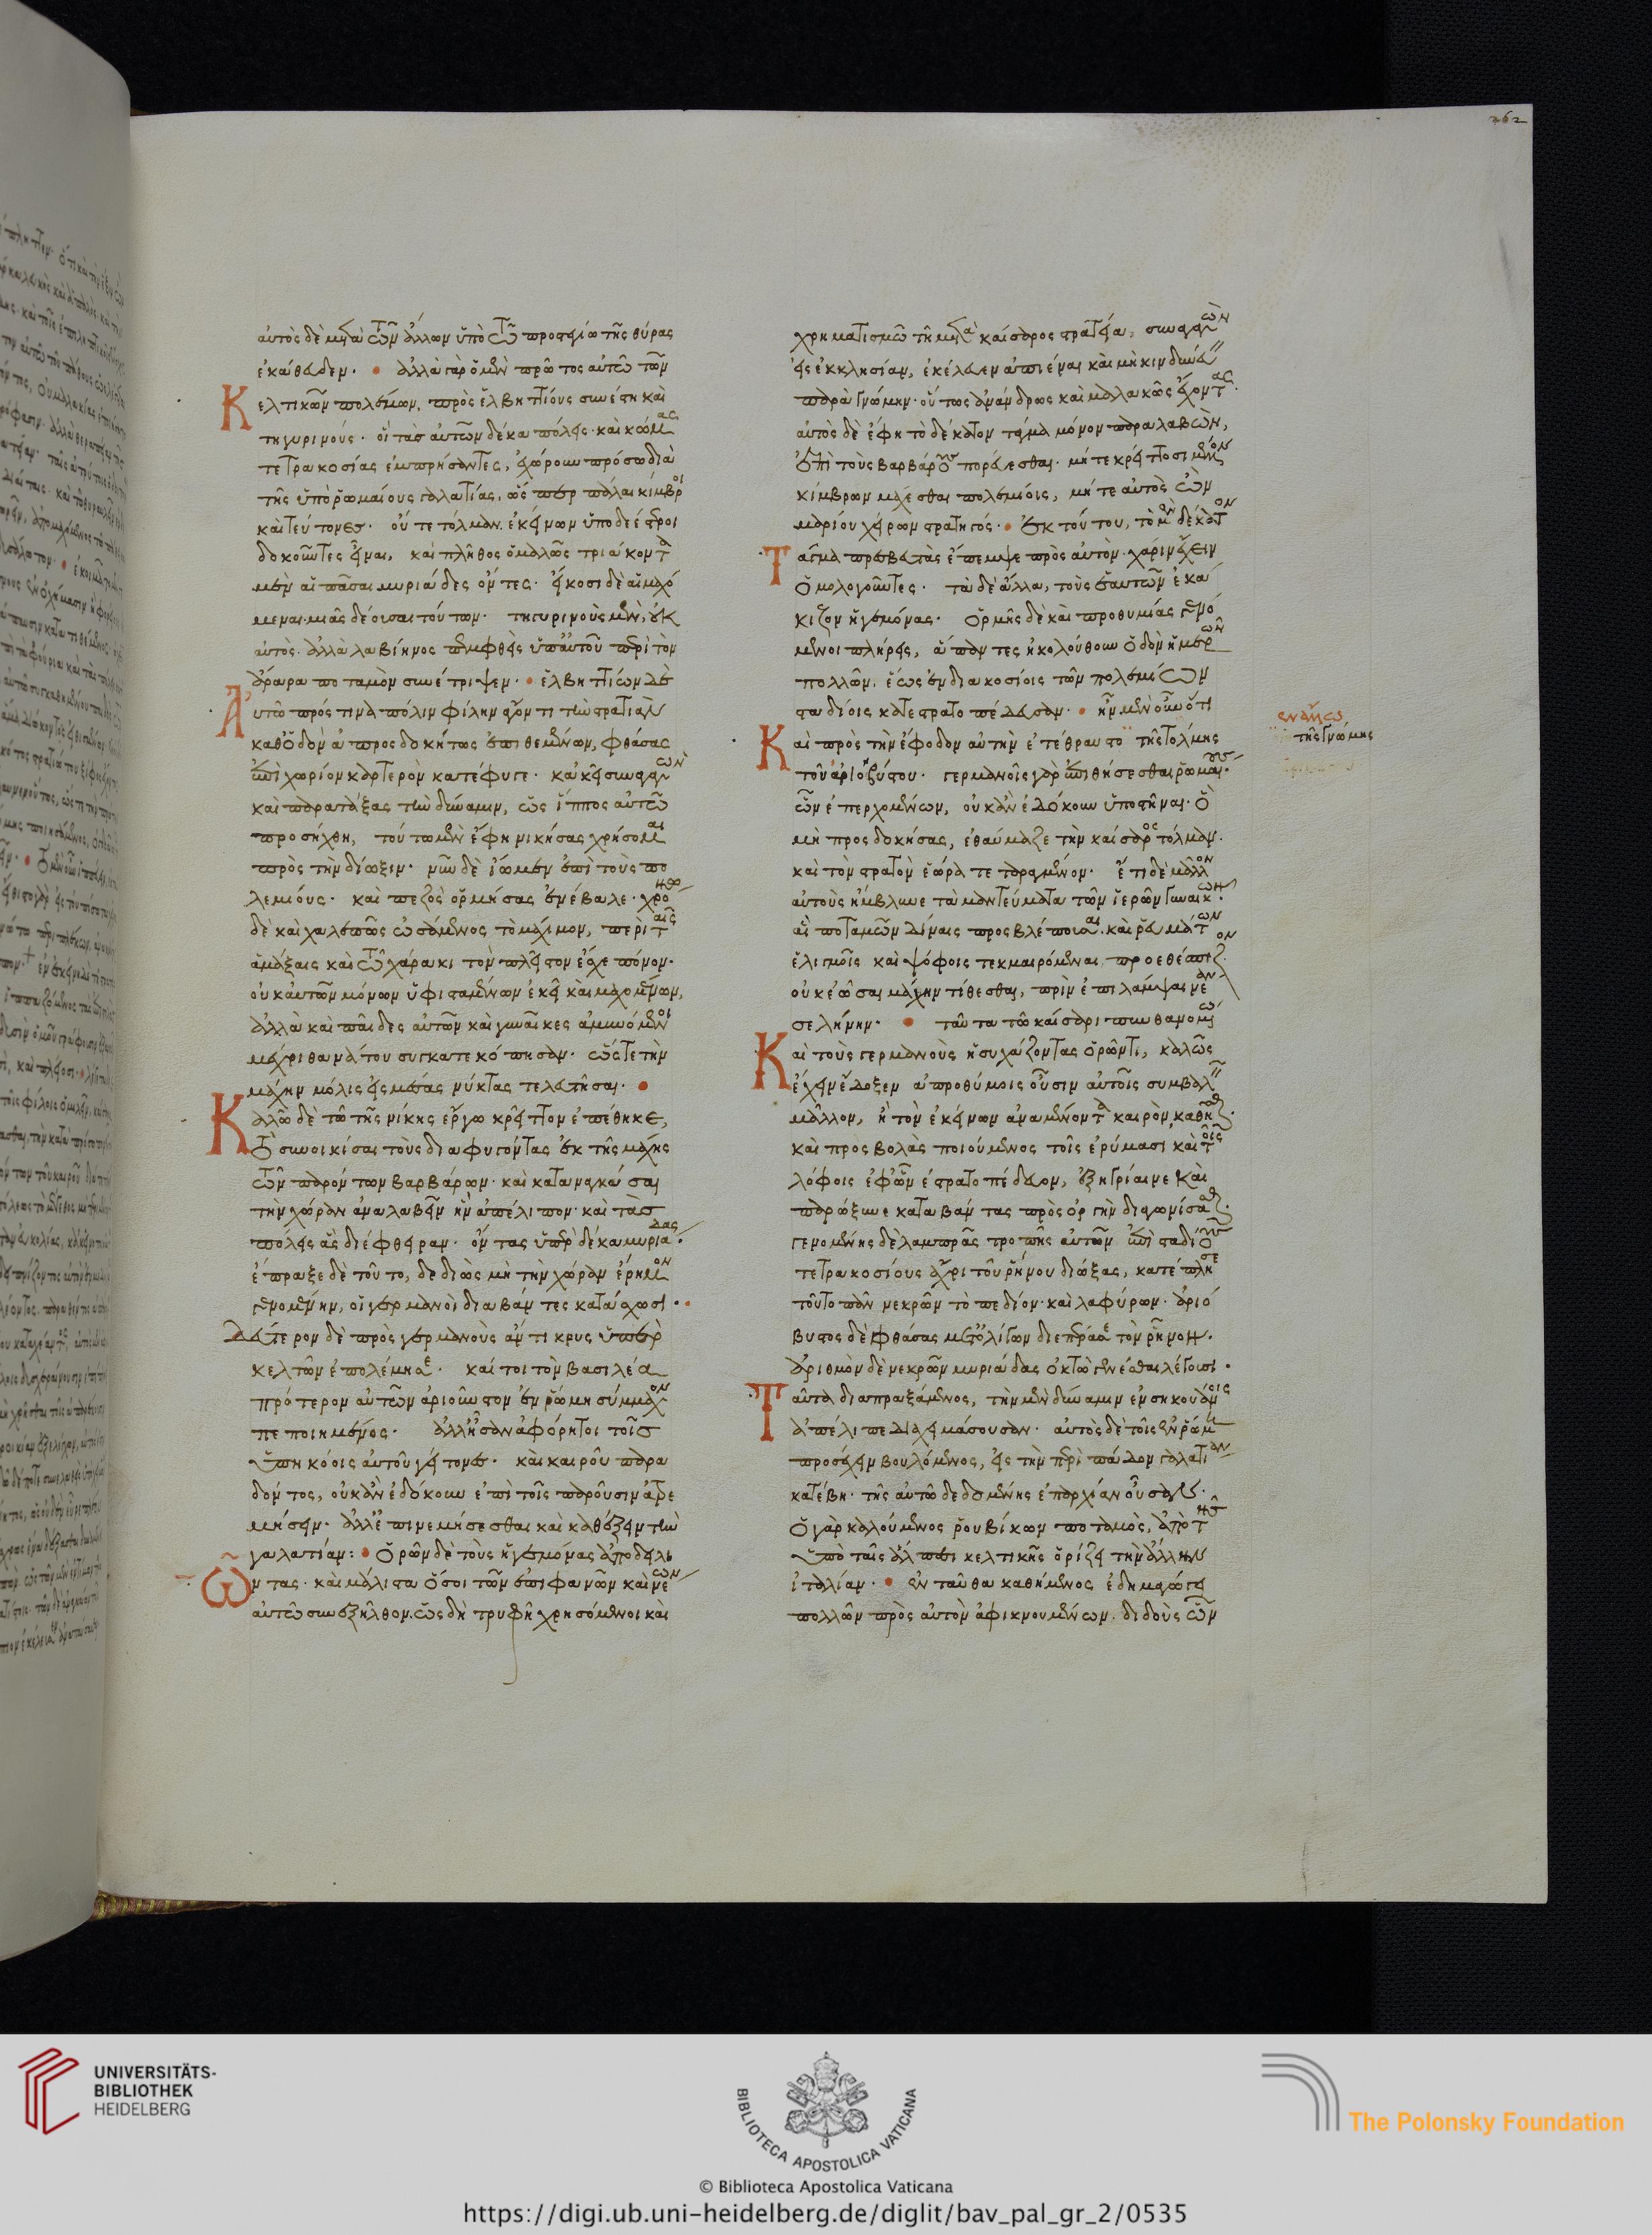 αὐτὸς δὲ μετὰ τῶν ἄλλων ὑπὸ τῶ προστείω τῆς θύρας
ἐκάθευδεν. ἀλλὰ γὰρ ὁ μὲν πρῶτος αὐτῶ τῶν
Κελτικῶν πολέμων, πρὸς ἐλβηττίους συνέστη καὶ
τηγυρινούς· οἳ τὰσ αὐτῶν δέκα πόλεις καὶ κώμας
τετρακοσίας ἐμπρήσαντες, ἐχώρουν πρόσω διὰ
τῆς ὑπὸ ῥωμαίους γαλατίας, ὥσπερ πάλαι κίμβροι
καὶ τεύτονεσ· οὔτε τόλμαν ἐκείνων ὑποδεέστεροι
δοκοῦντες εἶναι, καὶ πλῆθος ὁμαλῶς τριάκοντα
μὲν αἱ πᾶσαι μυριάδες ὄντες· εἴκοσι δὲ αἱ μαχό
μεναι μιᾶς δέουσαι τούτων· τηγυρινοὺς μὲν, οὐκ
αὐτὸς· ἀλλὰ λαβίηνος πεμφθεὶς ὑπ' αὐτοῦ περὶ τὸν
ἄραρα ποταμὸν συνέτριψεν· ἐλβηττίων δὲ
Αὐτῶ πρός τινα πόλιν φίλην ἄγοντι τὴν στρατιὰν
καθ' ὁδὸν ἀπροσδοκήτως ἐπιθεμένων, φθάσας
ἐπὶ χωρίον καρτερὸν κατέφυγε· κἀκεῖ συναγαγὼν
καὶ παρατάξας τὴν δύναμιν, ὡς ἵππος αὐτῶ
προσήχθη, τούτω μὲν ἔφη νικήσας χρήσομαι
πρὸς τὴν δίωξιν· νῦν δὲ ἴωμεν ἐπὶ τοὺς πο
λεμίους· καὶ πεζὸς ὁρμήσας ἐνέβαλε· χρόνω
δὲ καὶ χαλεπῶς ὠσάμενος τὸ μάχιμον, περὶ ταῖς
ἁμάξαις καὶ τῶ χάρακι τὸν πλεῖστον ἔσχε πόνον·
οὐκ αὐτῶν μόνων ὑφισταμένων ἐκεῖ καὶ μαχομένων,
ἀλλὰ καὶ παῖδες αὐτῶν καὶ γυναῖκες ἀμυνόμενοι
μέχρι θανάτου συγκατεκόπησαν· ὥστε τὴν
μάχην μόλις εἰς μέσας νύκτας τελευτῆσαι·
Καλῶ δὲ τῶ τῆς νίκης ἔργω κρεῖττον ἐπέθηκε,
τὸ συνοικίσαι τοὺς διαφυγόντας ἐκ τῆς μάχης
τῶν παρόντων βαρβάρων· καὶ καταναγκάσαι
τὴν χώραν ἀναλαβεῖν ἣν ἀπέλιπον· καὶ τὰσ
πόλεις ἃς διέφθειραν· ὄντας ὑπὲρ δέκα μυριάδας·
ἔπραξε δὲ τοῦτο, δεδιὼς μὴ τὴν χώραν ἔρημον
γενομένην, οἱ γερμανοὶ διαβάντες κατάσχωσι·
Δεύτερον δὲ πρὸς γερμανοὺς ἄντικρυς ὑπὲρ
κελτῶν ἐπολέμησε· καίτοι τὸν βασιλέα
πρότερον αὐτῶν ἀριοῦστον ἐν ῥώμη σύμμαχον
πεποιημένος· ἀλλ' ἦσαν ἀφόρητοι τοῖσ
ὑπηκόοις αὐτοῦ γείτονεσ· καὶ καιροῦ παρα
δόντος, οὐκ ἂν ἐδόκουν ἐπὶ τοῖς παροῦσιν ἀτρε
μήσειν· ἀλλ' ἐπινεμήσεσθαι καὶ καθέξειν τὴν
γαλατίαν: ὁρῶν δὲ τοὺς ἡγεμόνας ἀποδειλι
ῶντας· καὶ μάλιστα ὅσοι τῶν ἐπιφανῶν καὶ νέων
αὐτῶ συνεξῆλθον, ὡς δὴ τρυφῆ χρησόμενοι καὶ
χρηματισμῶ τῆ μετὰ καίσαρος στρατεία, συναγαγὼν
εἰς ἐκκλησίαν, ἐκέλευεν ἀπιέναι καὶ μὴ κινδυνεύειν
παρὰ γνώμην· οὕτως ἀνάνδρως καὶ μαλακῶς ἔχοντας·
αὐτὸς δὲ ἔφη τὸ δέκατον τάγμα μόνον παραλαβὼν,
ἐπὶ τοὺς βαρβάρους πορεύεσθαι· μήτε κρείττοσι μέλλων
κίμβρων μάχεσθαι πολεμίοις, μήτε αὐτὸς ὢν
μαρίου χείρων στρατηγός· ἐκ τούτου, τὸ μὲν δέκατον
Τάγμα πρεσβευτὰς ἔπεμψε πρὸς αὐτὸν· χάριν ἔχειν
ὁμολογοῦντες· τὰ δὲ ἄλλα, τοὺς ἑαυτῶν ἐκά
κιζον ἡγεμόνας· ὁρμῆς δὲ καὶ προθυμίας γενό
μενοι πλήρεις, ἅπαντες ἠκολούθουν ὁδὸν ἡμερῶν
πολλῶν, ἕως ἐν διακοσίοις τῶν πολεμίων
σταδίοις κατεστρατοπέδευσαν· ἦν μὲν οὖν ὅτι
Καὶ πρὸς τὴν ἔφοδον αὐτὴν ἐτέθραυστο τῆς τόλμης
τοῦ ἀριοβύστου· γερμανοῖς γὰρ ἐπιθήσεσθαι ῥωμαίους·
ὧν ἐπερχομένων, οὐκ ἂν ἐδόκουν ὑποστῆναι· ὃ
μὴ προσδοκήσας, ἐθαύμαζε τὴν καίσαρος τόλμαν·
καὶ τὸν στρατὸν ἑώρα τεταραγμένον· ἔτι δὲ μᾶλλον
αὐτοὺς ἤμβλυνε τὰ μαντεύματα τῶν ἱερῶν γυναικῶν·
αἳ ποταμῶν δίναις προσβλέπουσαι· καὶ ῥευμάτων
ἑλιγμοῖς καὶ ψόφοις τεκμαιρόμεναι προεθέσπιζον·
οὐκ ἐῶσαι μάχην τίθεσθαι, πρὶν ἐπιλάμψαι νέαν
σελήνην· ταῦτα τῶ καίσαρι πυνθανομένω
Καὶ τοὺς γερμανοὺς ἡσυχάζοντας ὁρῶντι, καλῶς
ἔχειν ἔδοξεν ἀπροθύμοις οὖσιν αὐτοῖς συμβαλεῖν
μᾶλλον, ἢ τὸν ἐκείνων ἀναμένοντα καιρὸν καθῆσθαι·
καὶ προσβολὰς ποιούμενος τοῖς ἐρύμασι, καὶ τοῖς
λόφοις ἐφ' ὧν ἐστρατοπέδευον, ἐξηγρίαινε καὶ
παρώξυνε καταβάντας πρὸς ὀργὴν διαγωνίσασθαι·
γενομένης δὲ λαμπρᾶς τροπῆς αὐτῶν ἐπὶ σταδίους
τετρακοσίους ἄχρι τοῦ ῥήνου διώξας, κατέπλησε
τοῦτο πᾶν νεκρῶν τὸ πεδίον· καὶ λαφύρων· ἀριό
βυστος δὲ φθάσας μετ' ὀλίγων διεπέρασε τὸν ῥῆνον·
ἀριθμὸν δὲ νεκρῶν μυριάδας ὀκτὼ γενέσθαι λέγουσι·
Ταῦτα διαπραξάμενος, τὴν μὲν δύναμιν ἐν σηκουανοῖς
ἀπέλιπε διαχειμάσουσαν· αὐτὸς δὲ τοῖς ἐν ῥώμη
προσέχειν βουλόμενος, εἰς τὴν περὶ πάδον γαλατίαν
κατέβη· τῆς αὐτῶ δεδομένης ἐπαρχίαν οὖσαν·
ὁ γὰρ καλούμενος ῥουβίκων ποταμὸς, ἀπὸ τῆσ
ὑπὸ ταῖς ἄλπεσι κελτικῆς ὁρίζει τὴν ἄλλην
ἰταλίαν· ἐνταῦθα καθήμενος ἐδημαγώγει
πολλῶν πρὸς αὐτὸν ἀφικνουμένων· διδοὺς ὧν
τῆς γνώμης
262
UNIVERSITÄTS-
BIBLIOTHEK
HEIDELBERG
BIBLIOTECA APOSTOLICA VATICANA
The Polonsky Foundation
© Biblioteca Apostolica Vaticana
https://digi.ub.uni-heidelberg.de/diglit/bav_pal_gr_2/0535